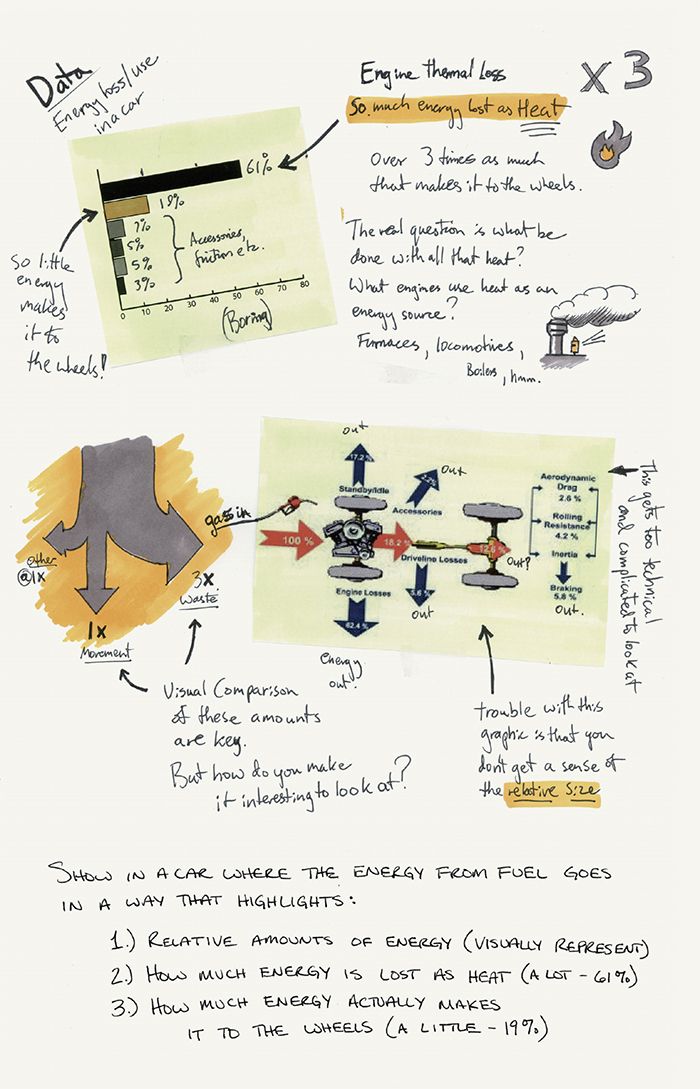 Data
Energy loss/use
in a car
61%
19%
7%
5%
5%
3%
Accessories,
friction etc.
0 10 20 30 40 50 60 70 80
(Boring)
So little
energy
makes
it to
the wheels!
Engine thermal Loss
x 3
So much energy lost as Heat
Over 3 times as much
that makes it to the wheels.
The real question is what be
done with all that heat?
What engines use heat as an
energy source?
Furnaces, locomotives,
Boilers, hmm.
other
@1x
1x
Movement
3x
Waste
gas in
out
17.2%
Standby/Idle
100 %
Engine Losses
62.4 %
energy
out!
2.2%
Out
Accessories
18.2 %
Driveline Losses
5.6 %
out
12.6 %
Out?
Aerodynamic
Drag
2.6 %
Rolling
Resistance
4.2 %
Inertia
Braking
5.8 %
Out.
This gets too technical
and complicated to look at
Visual Comparison
of these amounts
are key.
But how do you make
it interesting to look at?
trouble with this
graphic is that you
don't get a sense of
the relative size
SHOW IN A CAR WHERE THE ENERGY FROM FUEL GOES
IN A WAY THAT HIGHLIGHTS:
1.) RELATIVE AMOUNTS OF ENERGY (VISUALLY REPRESENT)
2.) HOW MUCH ENERGY IS LOST AS HEAT (A LOT - 61%)
3.) HOW MUCH ENERGY ACTUALLY MAKES
IT TO THE WHEELS (A LITTLE - 19%)